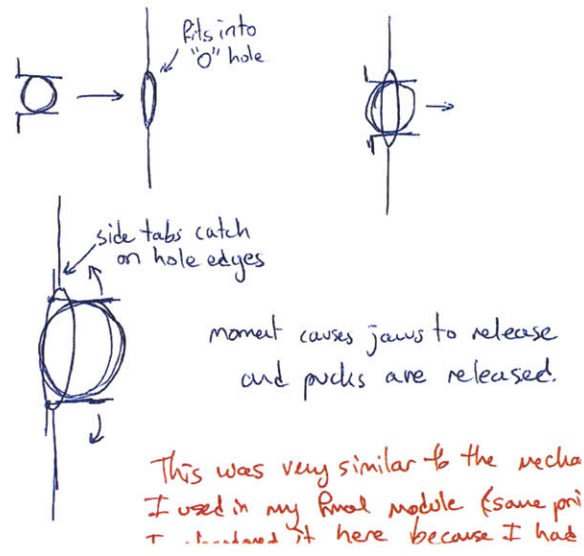 fits into
"O" hole
side tabs catch
on hole edges
moment causes jaws to release
and pucks are released.
This was very similar to the
I used in my final module (same
it here because I had